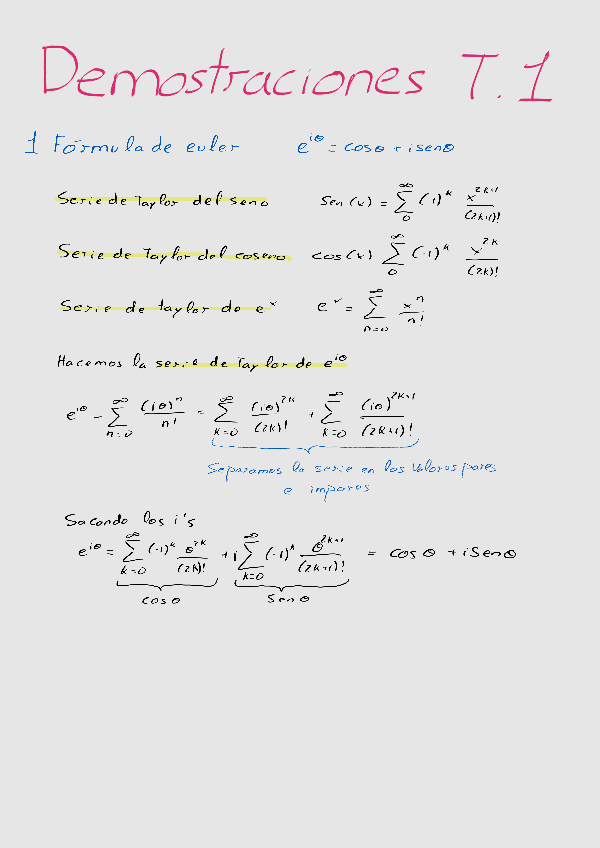 Demostraciones T.1
1 Fórmula de euler e^{iθ} = cosθ + i senθ
Serie de Taylor del seno Sen(x) = ∑_{0}^{∞} (-1)^k x^{2k+1}/(2k+1)!
Serie de Taylor del coseno cos(x) ∑_{0}^{∞} (-1)^k x^{2k}/(2k)!
Serie de taylor de e^x e^x = ∑_{n=0}^{∞} x^n/n!
Hacemos la serie de Taylor de e^{iθ}
e^{iθ} = ∑_{n=0}^{∞} (iθ)^n/n! = ∑_{k=0}^{∞} (iθ)^{2k}/(2k)! + ∑_{k=0}^{∞} (iθ)^{2k+1}/(2k+1)!
Separamos la serie en los valores pares
e impares
Sacando los i's
e^{iθ} = ∑_{k=0}^{∞} (-1)^k θ^{2k}/(2k)! + i ∑_{k=0}^{∞} (-1)^k θ^{2k+1}/(2k+1)! = cos θ + i Sen θ
cos θ Sen θ